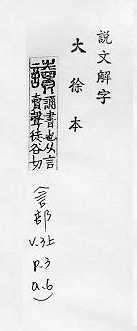 説文解字
大徐本
讀
誦書也从言
𧶠聲徒谷切
(言部
v.3上
p.3
a.6)